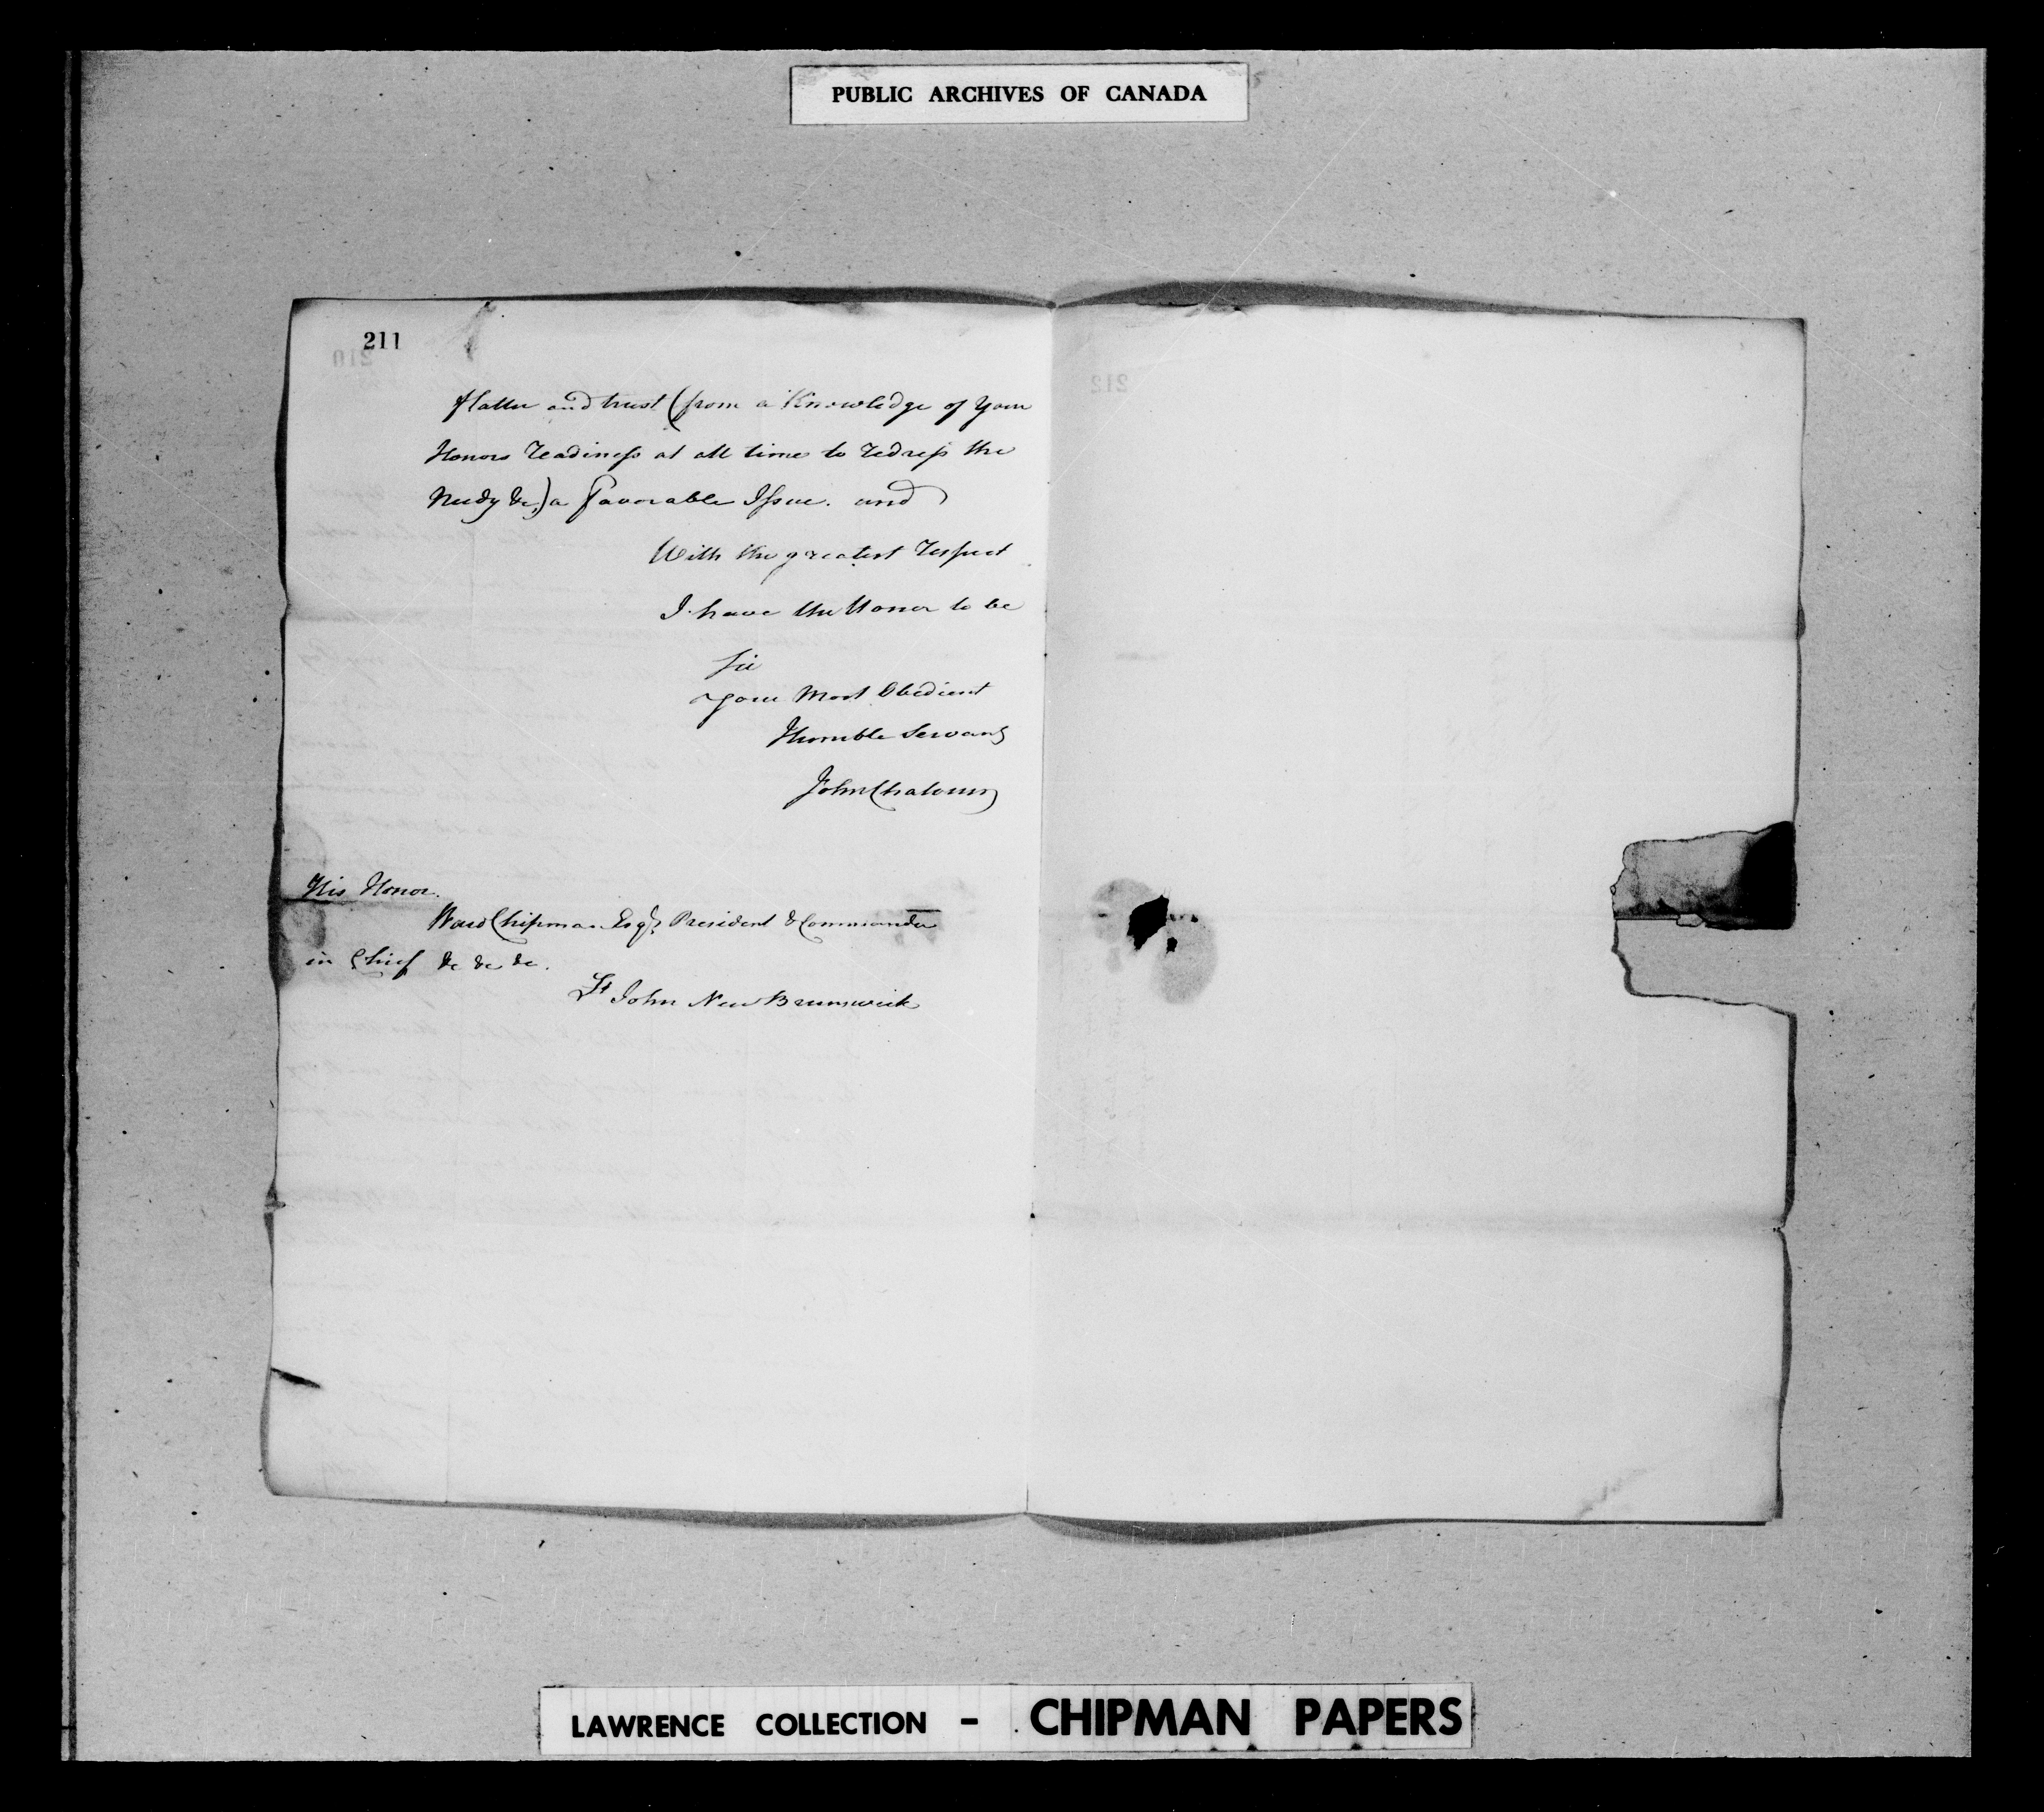 PUBLIC ARCHIVES OF CANADA
211
210
212
flatter and trust (from a Knowledge of Your
Honors readiness at all time to redress the
Needy &c,) a favorable Issue. and
With the greatest respect
I have the Honor to be
Sir
Your Most Obedient
Humble Servant
John Chaloner
His Honor.
Ward Chipman Esqr. President & Commander
in Chief &c &c &c.
St John New Brunswick
LAWRENCE COLLECTION - CHIPMAN PAPERS